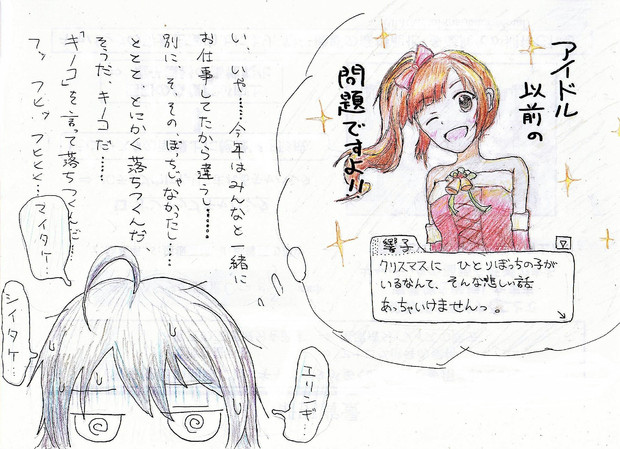 アイドル
以前の
問題ですよ!!
響子
クリスマスに ひとりぼっちの子が
いるなんて、そんな悲しい話
あっちゃいけませんっ。
い、いや……今年はみんなと一緒に
お仕事してたから違うし……
別に、そ、その、ぼっちじゃなかったし……
ととと とにかく落ちつくんだ、
そうだ、キノコだ……
「キノコ」を言って落ちつくんだ……
フッ フヒッ フヒヒヒ…
マイタケ…
シイタケ…
エリンギ…